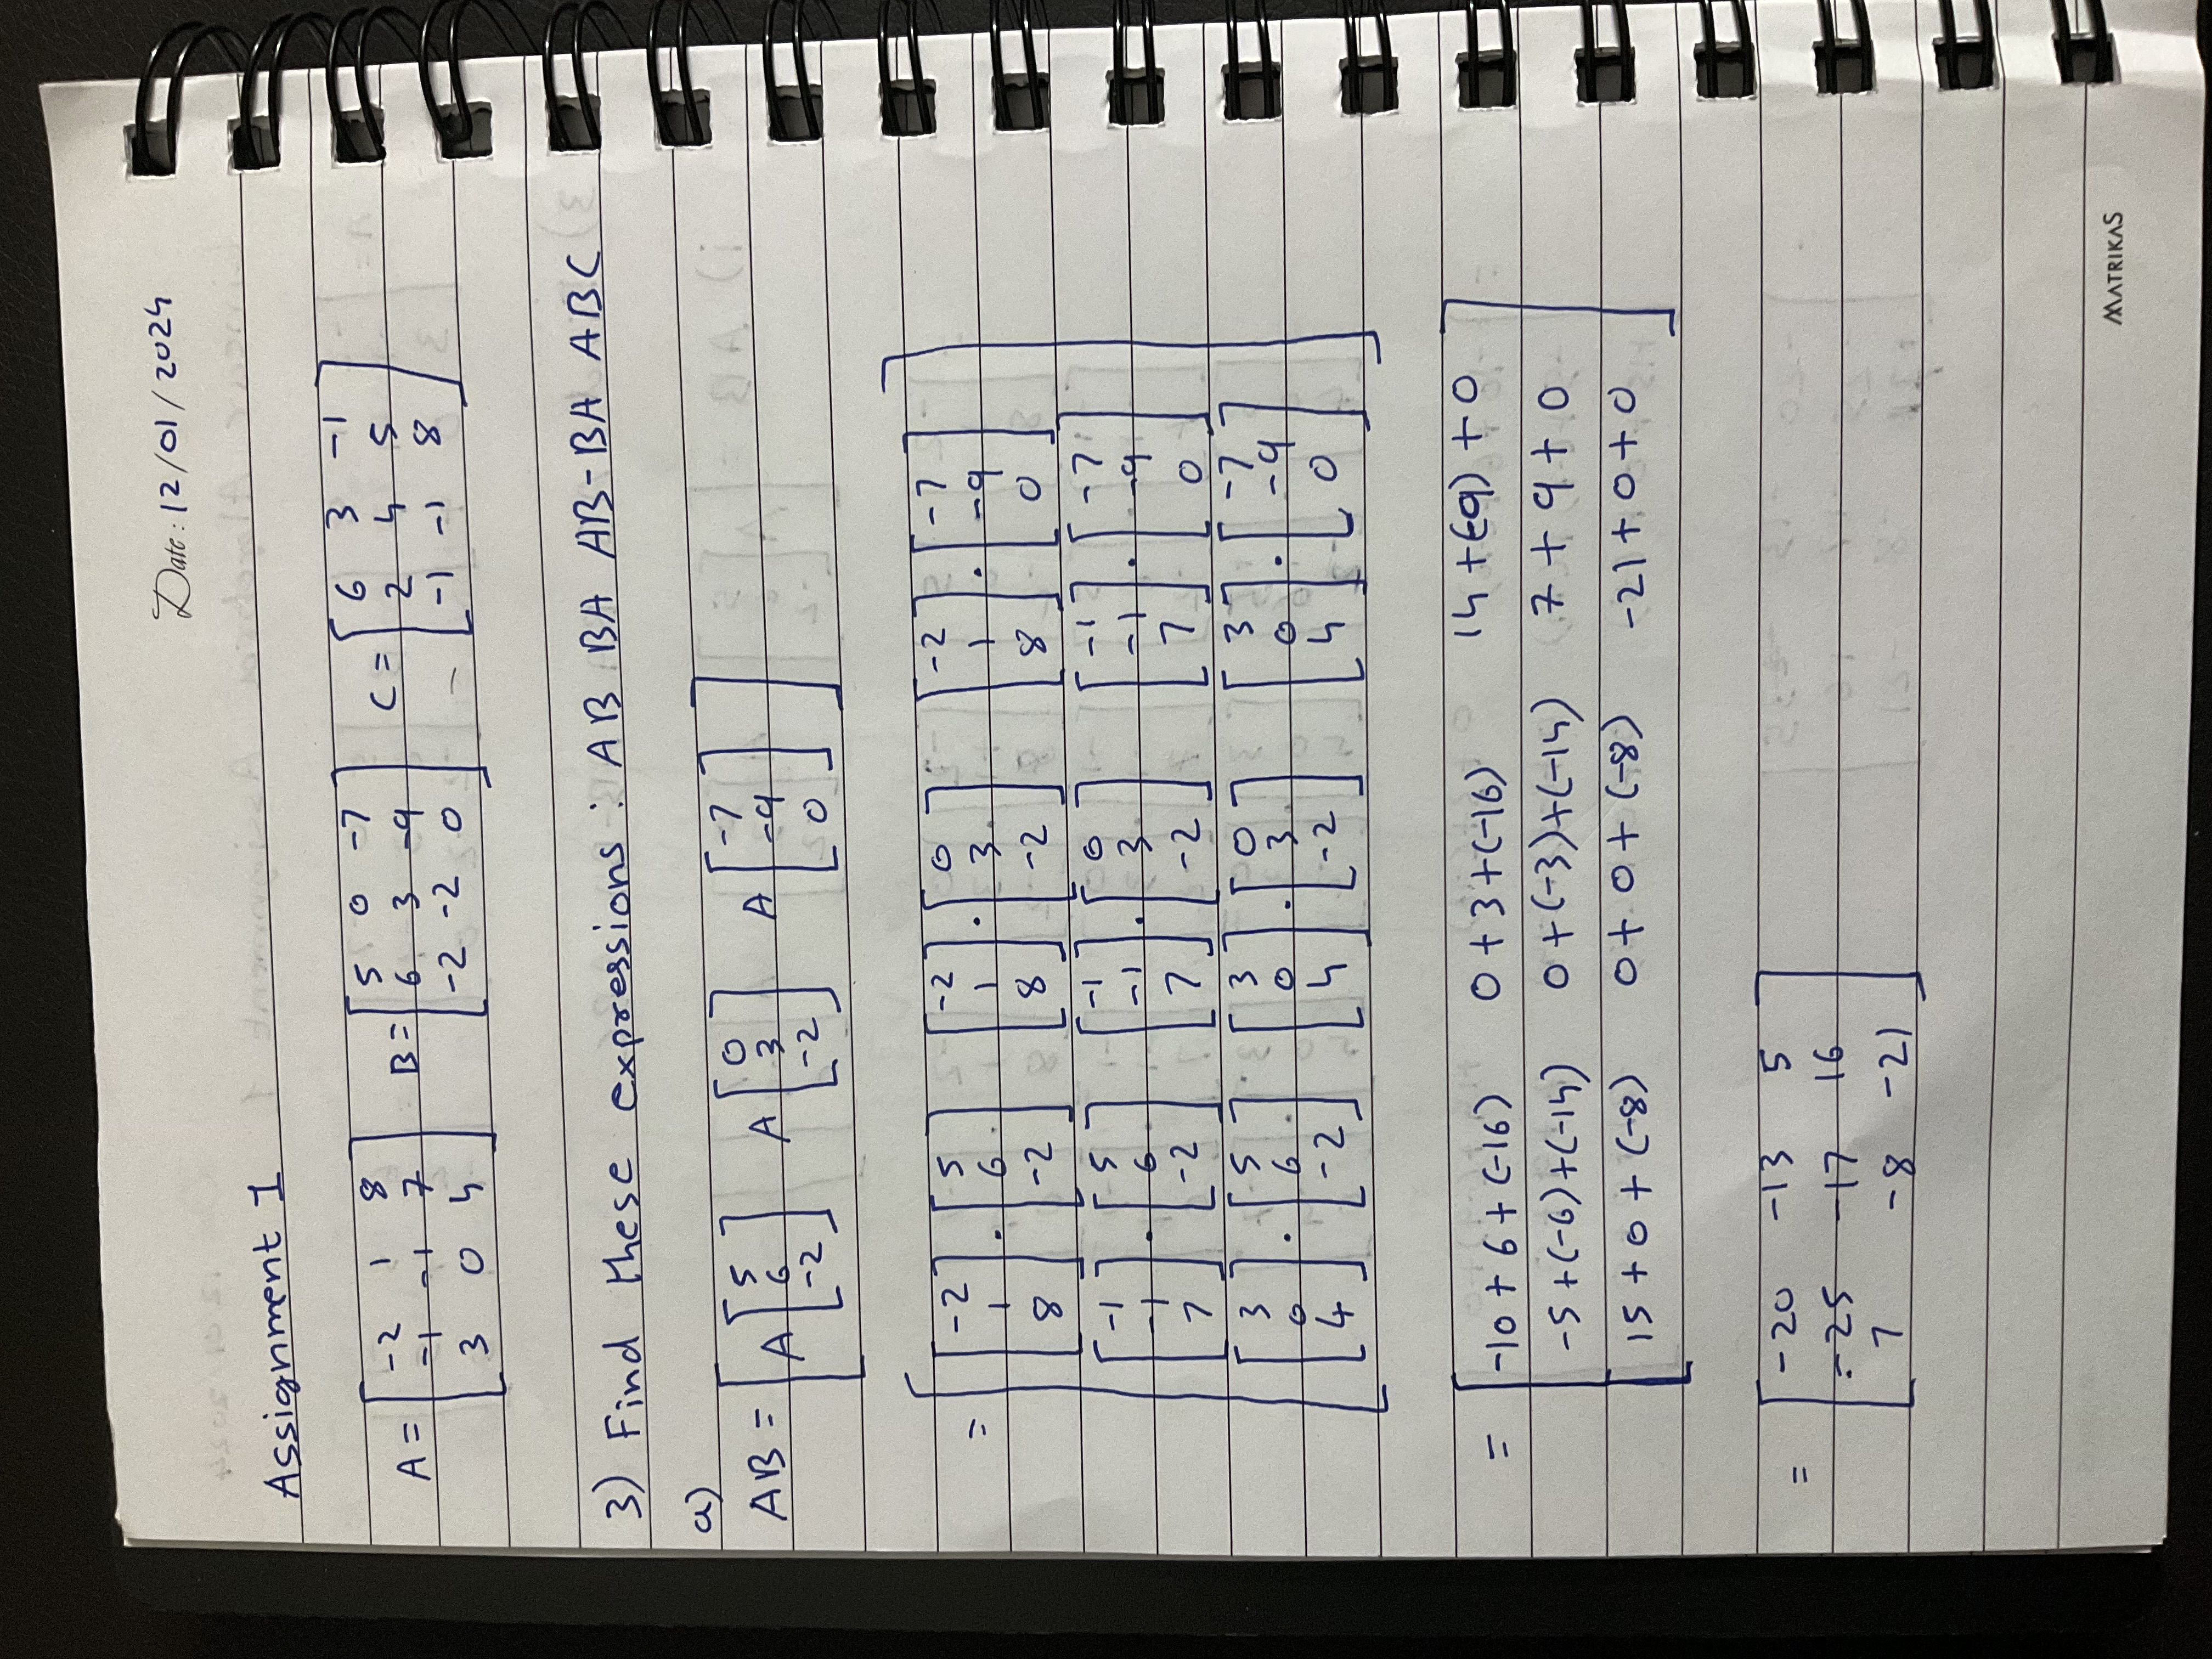 Date: 12/01/2024
Assignment 1
A = [ -2 1 8 ] B = [ 5 0 -7 ] C = [ 6 3 -1 ]
-1 -1 7 6 3 -9 2 4 5
3 0 4 -2 -2 0 -1 -1 8
3) Find these expressions : AB BA AB-BA ABC
a)
AB = [ A [ 5 6 -2 ] A [ 0 3 -2 ] A [ -7 -9 0 ] ]
= [ [ -2 1 8 ] . [ 5 6 -2 ] [ -2 1 8 ] . [ 0 3 -2 ] [ -2 1 8 ] . [ -7 -9 0 ]
[ -1 -1 7 ] . [ 5 6 -2 ] [ -1 -1 7 ] . [ 0 3 -2 ] [ -1 -1 7 ] . [ -7 -9 0 ]
[ 3 0 4 ] . [ 5 6 -2 ] [ 3 0 4 ] . [ 0 3 -2 ] [ 3 0 4 ] . [ -7 -9 0 ] ]
= [ -10 + 6 + (-16) 0 + 3 + (-16) 14 + (-9) + 0
-5 + (-6) + (-14) 0 + (-3) + (-14) 7 + 9 + 0
15 + 0 + (-8) 0 + 0 + (-8) -21 + 0 + 0 ]
= [ -20 -13 5
-25 -17 16
7 -8 -21 ]
MATRIKAS